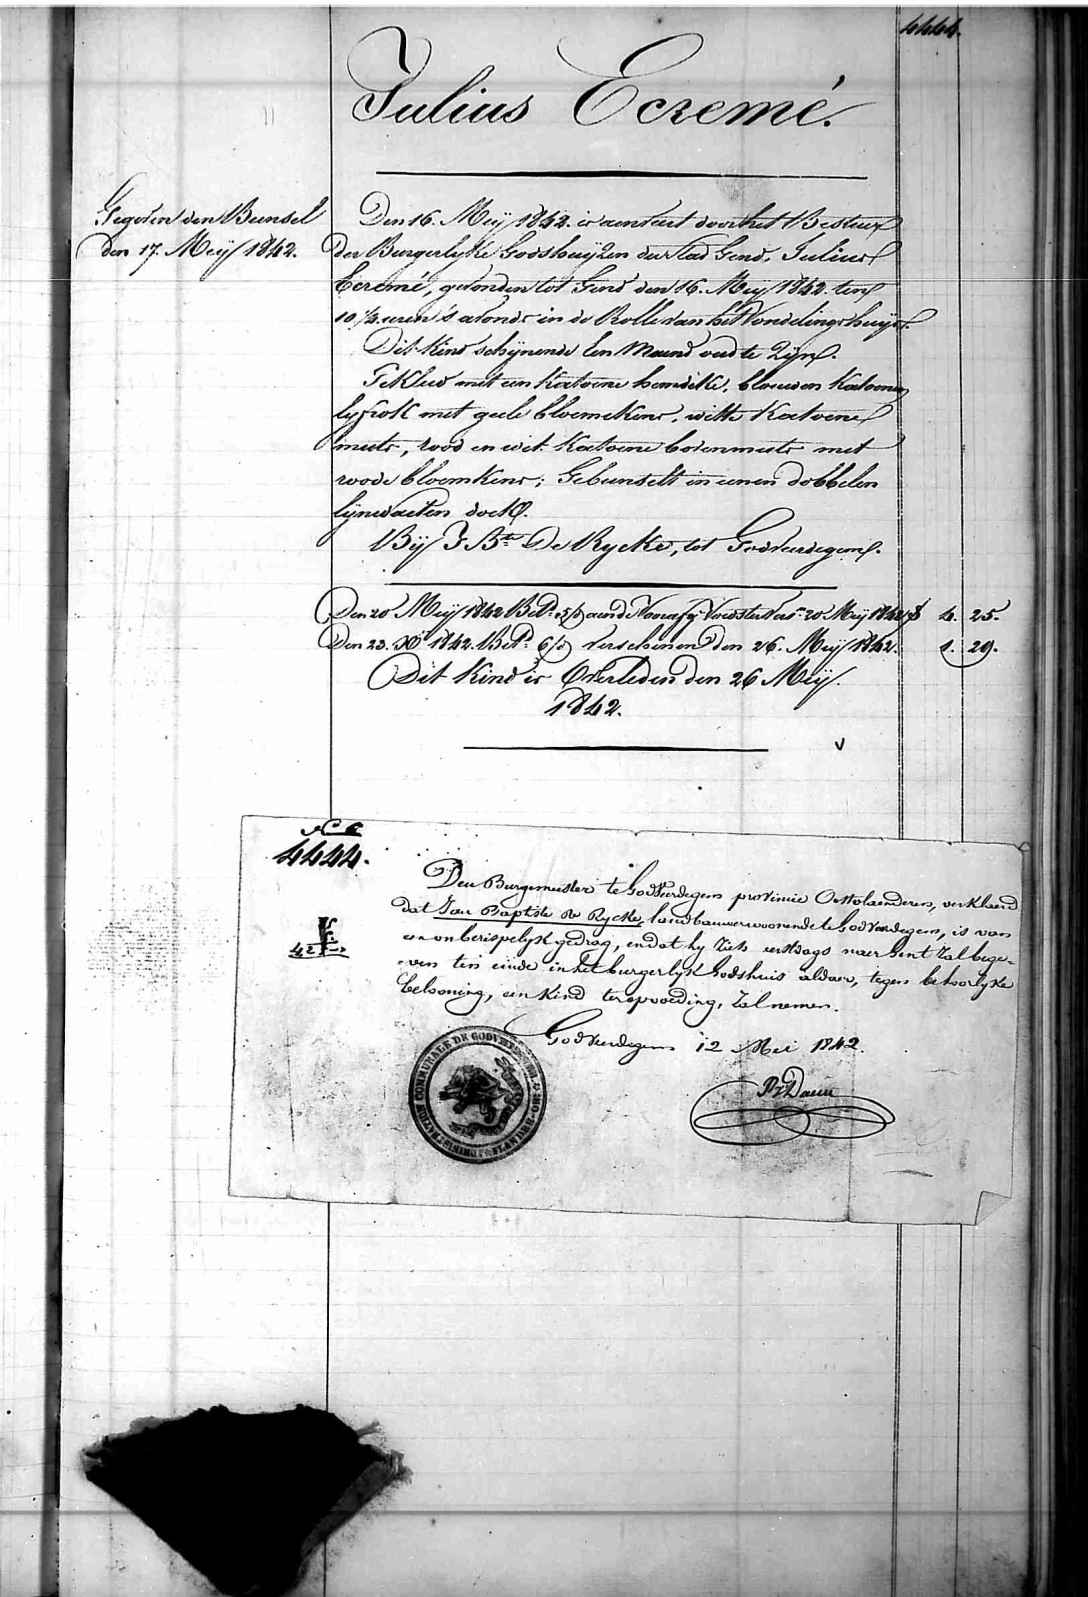 4444.
Julius Ecremé.
Gegeven den Bunsel
den 17. Meij 1842.
Den 16. Meij 1842. is aenveirt door het Bestuur
der Burgerlyke Godshuijzen der stad Gend, Julius
Ecremé, gevonden tot Gend den 16. Meij 1842. ten
10 ½ uren 's avonds in de Rolle van het Vondelingshuijs.
Dit kind schijnende een Maend oud te zijn.
Gekleed met een katoene hemdeke, blauwen katoenen
lijfrok met geele bloemekens, witte katoene
muts, rood en wit katoene bovenmuts met
roode bloemkens; Gebunselt in eenen dobbelen
lynwaeten doek.
Bij J. Bte De Rycke, tot Godveerdegem.
Den 20 Meij 1842 Betd. aen de Voedster 20 Meij 1842 4. 25.
Den 23. 1842. Betd. verschenen den 26. Meij 1842. 1. 29.
Dit Kind is Overleden den 26 Meij.
1842.
No
4444.
Den Burgemeester te Godveerdegem provincie Oostvlaenderen, verklaerd
dat Jan Baptiste De Rycke, landbauwer woonende te Godveerdegem, is van
een onberispelyk gedrag, en dat hy zich eerstdags naer Gent zal bege-
ven ten einde in het burgerlyk Godshuis aldaer, tegen behoorlyke
belooning, een kind ter opvoeding, zal nemen.
Godveerdegem 12 Mei 1842.
COMMUNALE DE GODVEERDEGEM
FLANDRE OR.